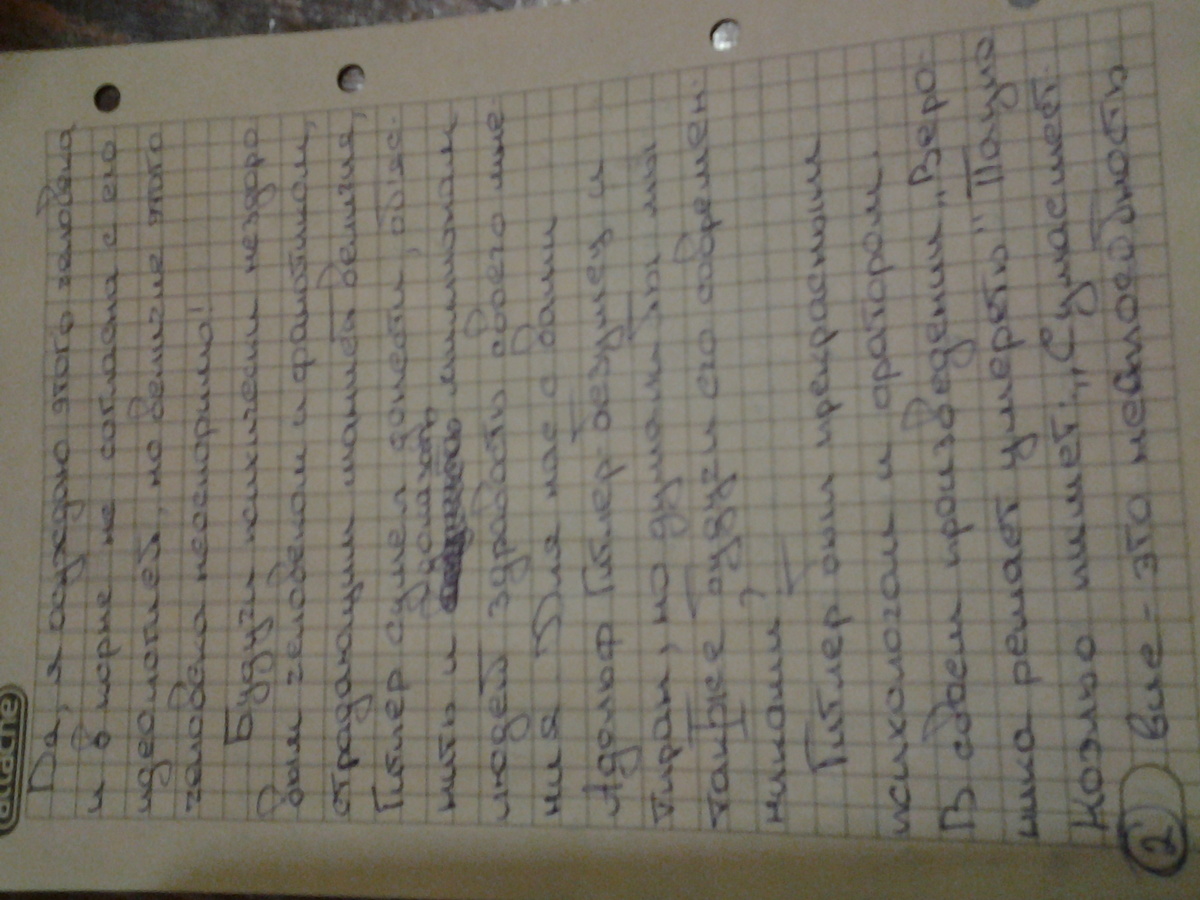 Да, я осуждаю этого человека
и в корне не согласна с его
идеологией, но величие этого
человека неоспоримо!
Будучи психически нездоро
вым человеком и фанатиком,
страдающим манией величия,
Гитлер сумел донести, объяс-
нить и доказать миллионам
людей здравость своего мне
ния Для нас с вами
Адольф Гитлер-безумец и
тиран, но думали бы мы
также, будучи его современ-
никами?
Гитлер был прекрасным
психологом и оратором.
В своем произведении „Веро-
ника решает умереть" Пауло
Коэльо пишет: „Сумасшест-
вие - это неспособность
2